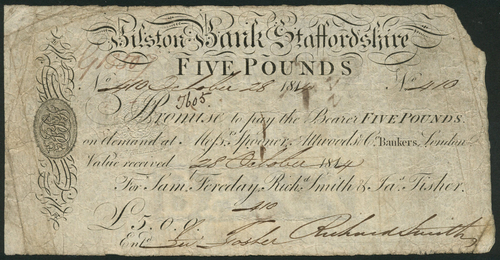 Bilston Bank Staffordshire
FIVE POUNDS
No. 410 October 28 1814 No. 410
7605
I Promise to pay the Bearer FIVE POUNDS
on demand at Messrs. Spooner, Attwoods & Co. Bankers, London
Value received 28 October 1814
For Sam. Fereday, Richd. Smith & Jas. Fisher.
410
£ 5.0.0.
Entd. Foster Richard Smith